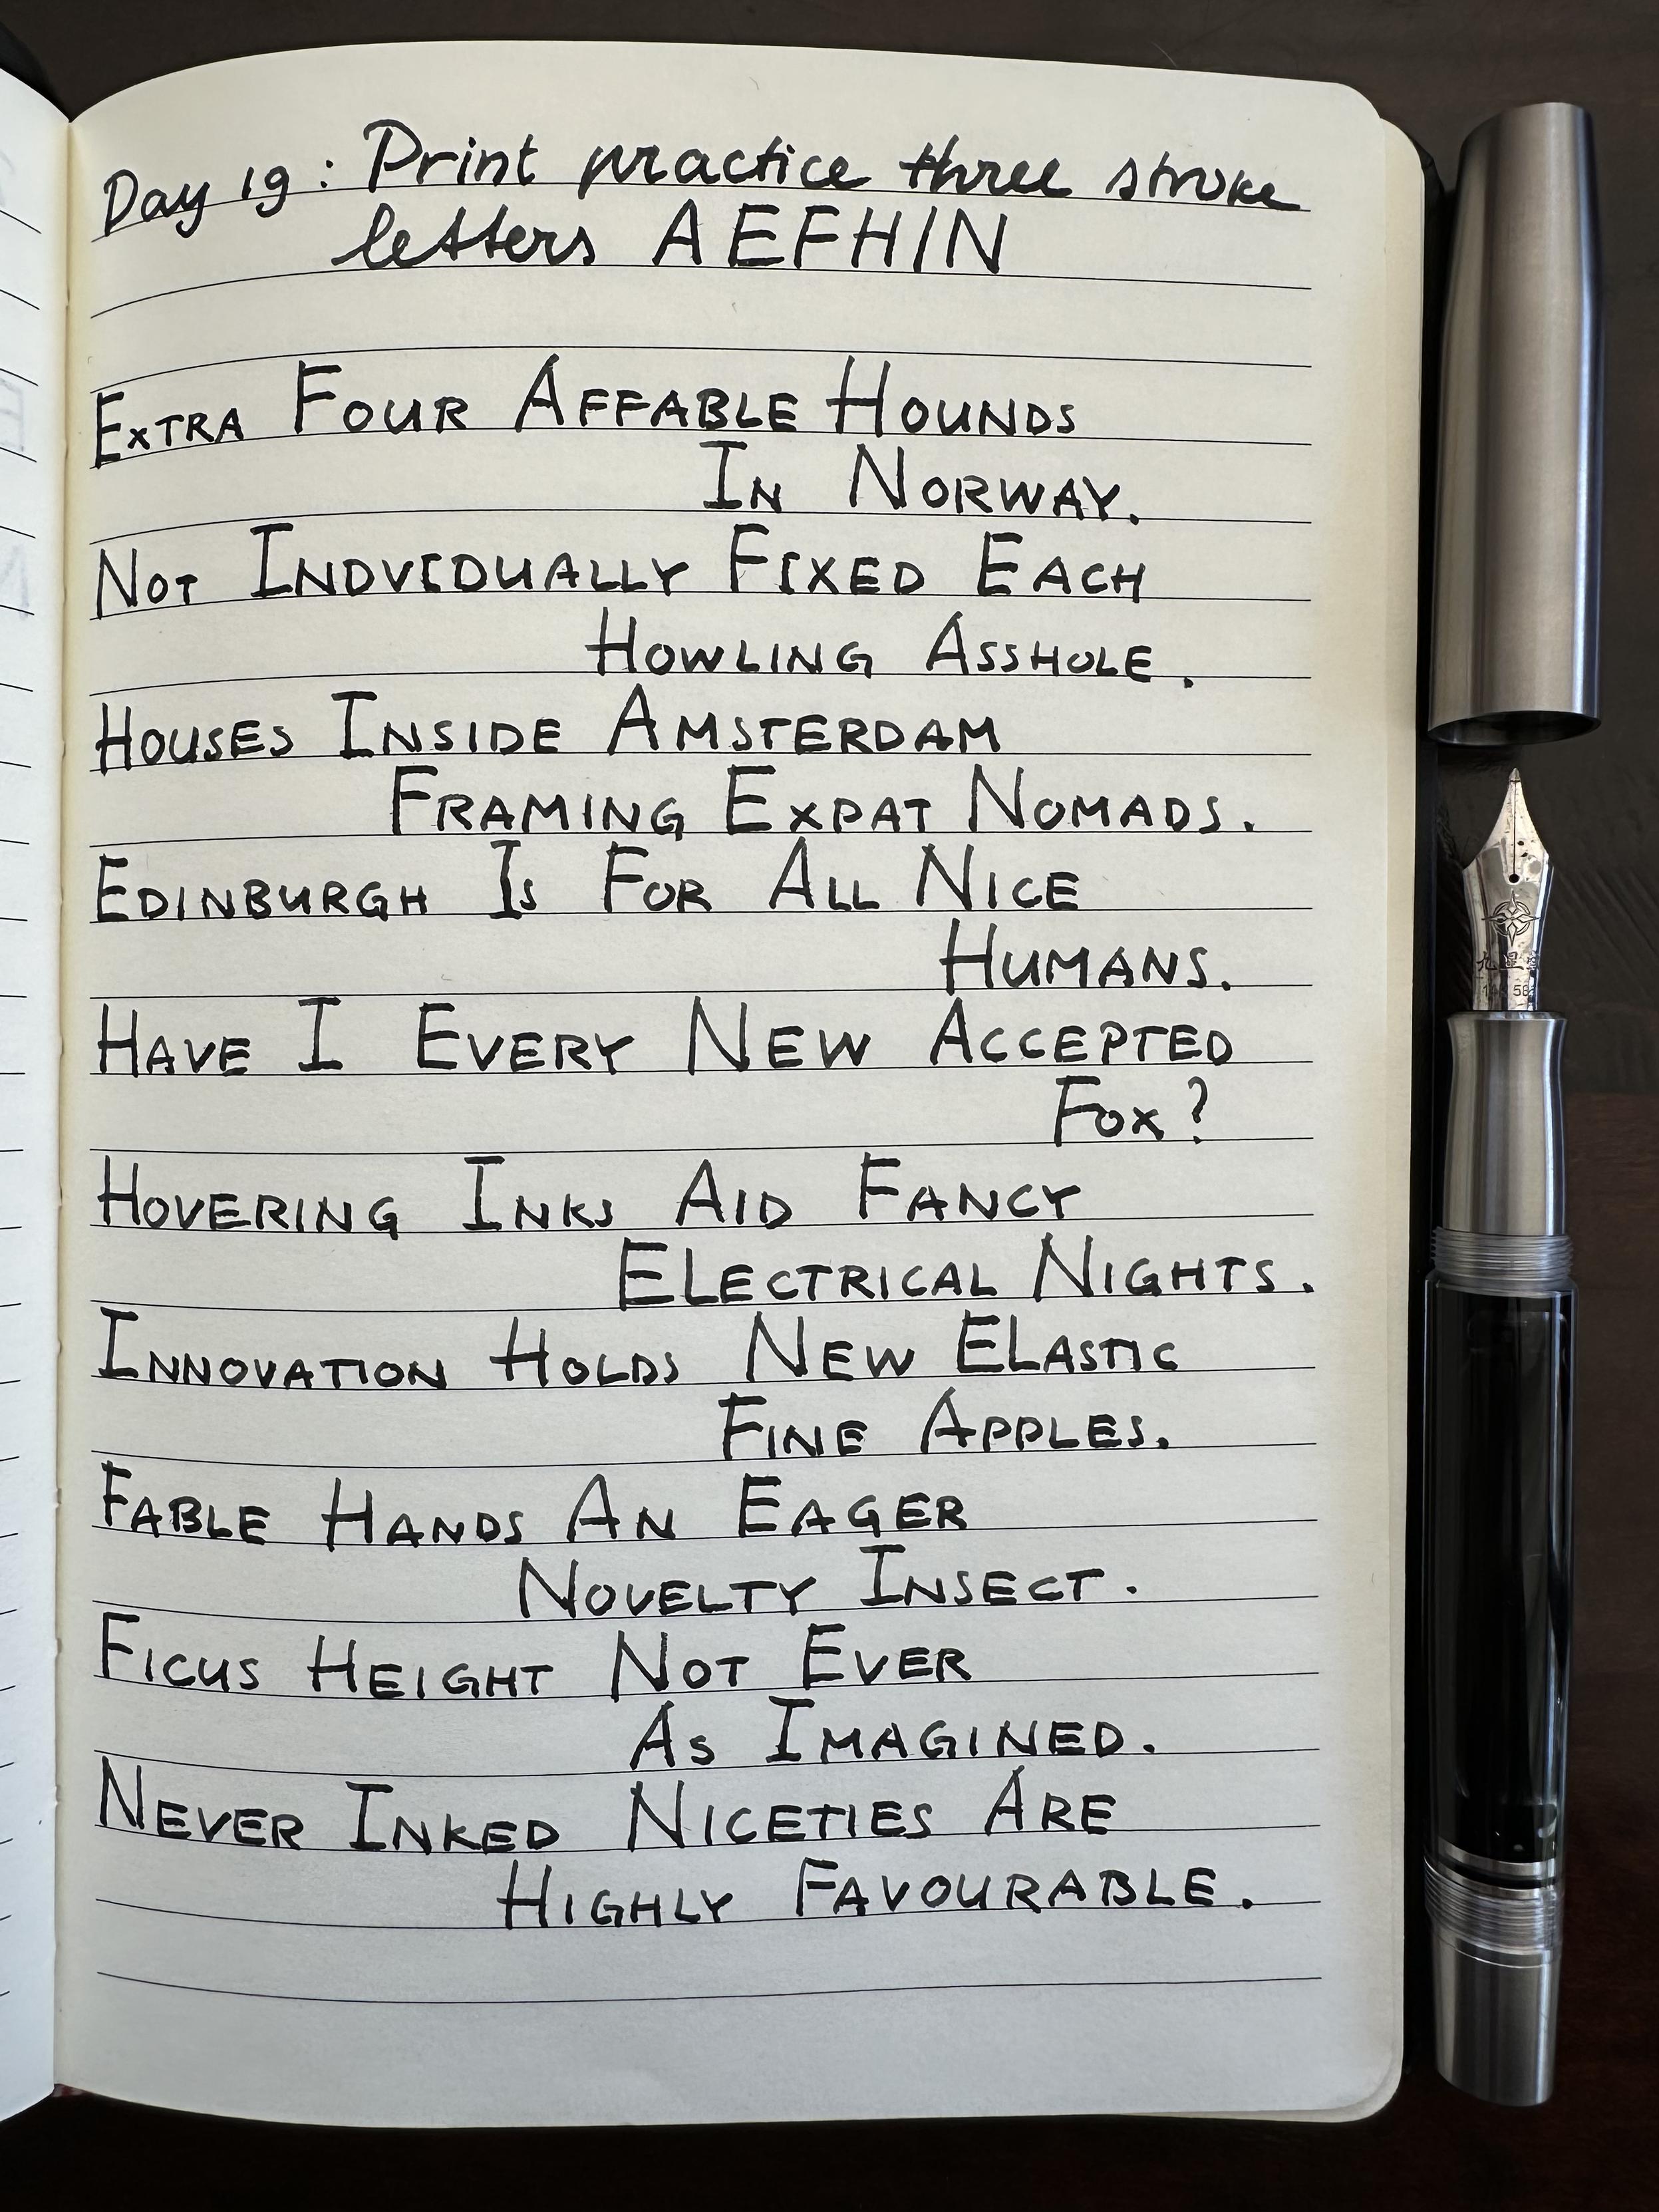 Day 19: Print practice three stroke
letters AEFHIN
EXTRA FOUR AFFABLE HOUNDS
IN NORWAY.
NOT INDVIDUALLY FIXED EACH
HOWLING ASSHOLE.
HOUSES INSIDE AMSTERDAM
FRAMING EXPAT NOMADS.
EDINBURGH IS FOR ALL NICE
HUMANS.
HAVE I EVERY NEW ACCEPTED
FOX?
HOVERING INKS AID FANCY
ELECTRICAL NIGHTS.
INNOVATION HOLDS NEW ELASTIC
FINE APPLES.
FABLE HANDS AN EAGER
NOVELTY INSECT.
FICUS HEIGHT NOT EVER
AS IMAGINED.
NEVER INKED NICETIES ARE
HIGHLY FAVOURABLE.